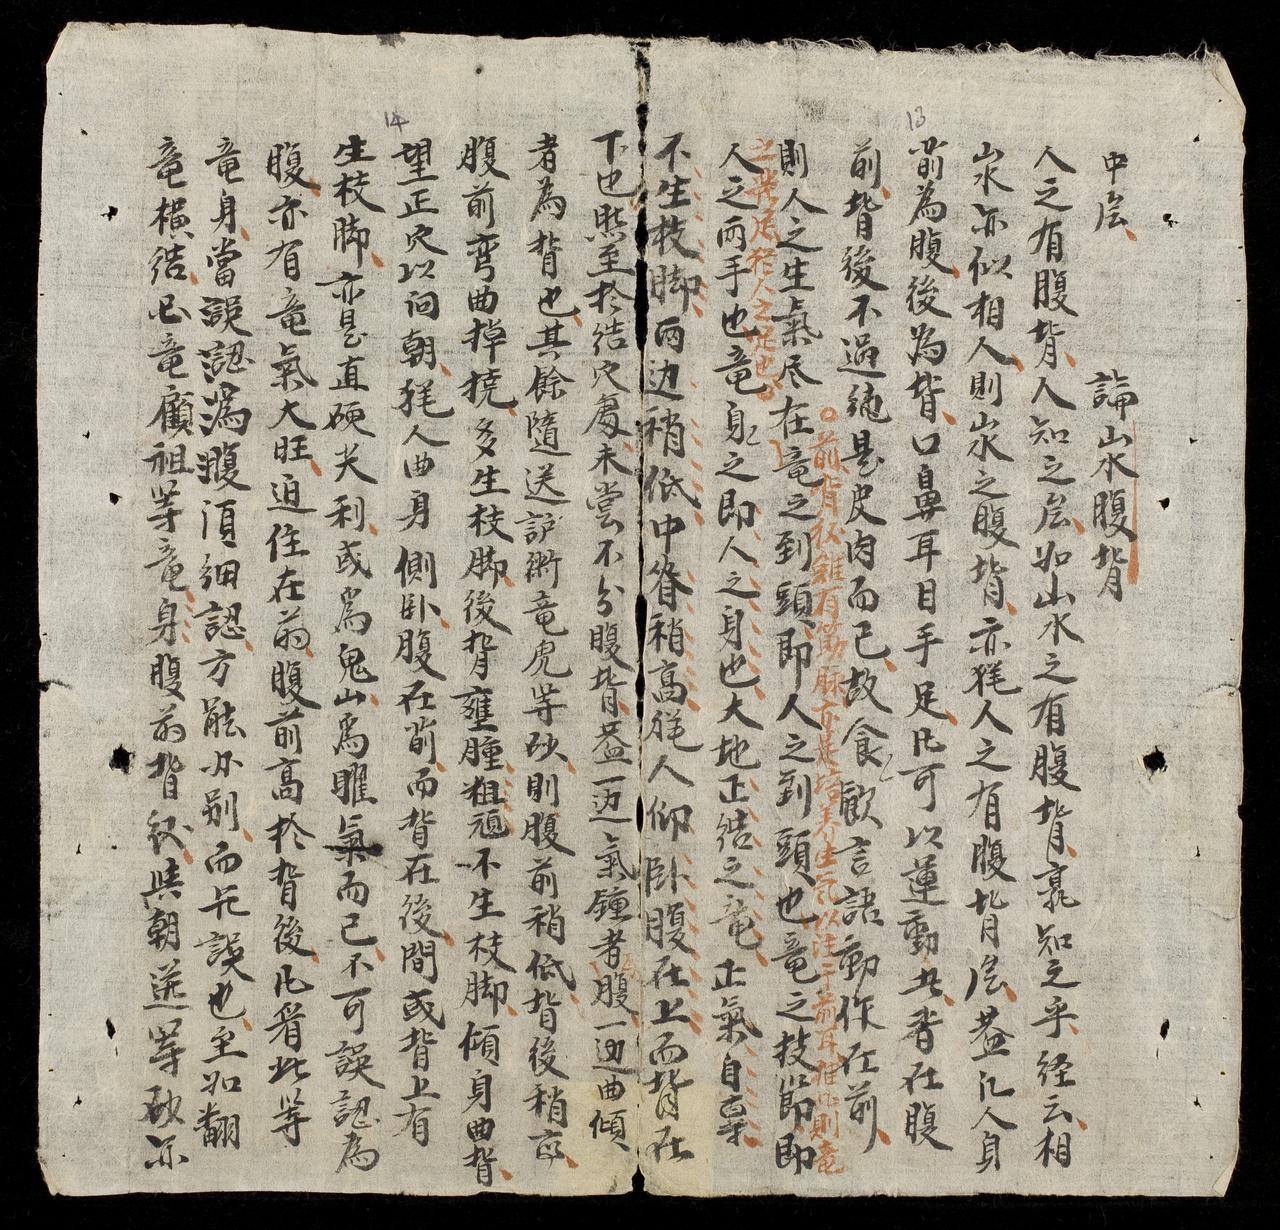 13
中層 論山水腹背
人之有腹背人知之層如山水之有腹背孰知之乎経云相
山水亦似相人則山水之腹背亦猶人之有腹背層蓋凡人身
前為腹後為背口鼻耳目手足凡可以運動者皆在腹
前背後不過純是皮肉而已故食飲言語動作在前
前背後雖有筋脉亦是培養生氣以注于前耳推此則竜
則人之生氣尽在竜之到頭即人之到頭也竜之枝節即
之虎尾於人之足也
人之両手也竜身之即人之身也大地正結之竜正氣自尊
不生枝脚両边稍低中脊稍高猶人仰卧腹在上而背在
下也然至於結穴處未嘗不分腹背蓋一边氣鍾者為腹一边曲傾
者為背也其餘隨送护衛竜虎等砂則腹前稍低背後稍高
腹前弯曲掉撓多生枝脚後背壅腫粗頑不生枝脚傾身曲背
14
望正穴以向朝猶人曲身側卧腹在前而背在後間或背上有
生枝脚亦是直硬尖利或為鬼山為曜氣而已不可誤認為
腹亦有竜氣大旺迫住在前腹前高於背後凡看此等
竜身當誤認為腹須細認方能分别而无誤也至如翻
竜横結巳竜顧祖等竜身腹前背後與朝逆等砂亦